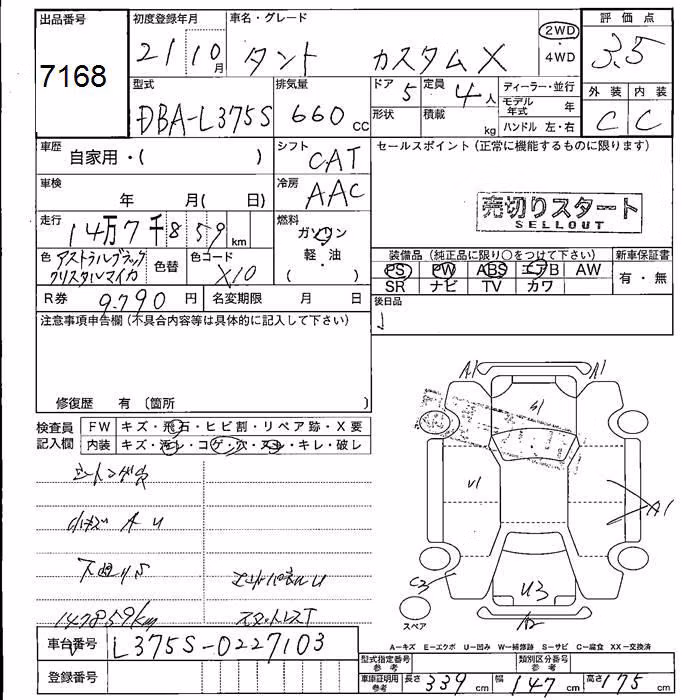 出品番号 初度登録年月 車名・グレード 評価点
7168 21 10月 タント カスタムX 2WD・4WD 3.5
型式 排気量 ドア 定員 ディーラー・並行 外装 内装
DBA-L375S 660cc 5 4人 モデル年式 年 C C
形状 積載 kg ハンドル 左・右
車歴 自家用・( ) シフト CAT セールスポイント(正常に機能するものに限ります)
車検 年 月( 日) 冷房 AAC
売切りスタート
SELLOUT
走行 14万7千859km 燃料 ガソリン 軽・油 ( )
色 アストラルブラッククリスタルマイカ 色替 色コード X10
装備品(純正品に限り○をつけて下さい) 新車保証書
PS PW ABS エアB AW 有・無
SR ナビ TV カワ
R券 9,790円 名変期限 月 日
後日品
注意事項申告欄(不具合内容等は具体的に記入して下さい)
修復歴 有 〔箇所 〕
検査員記入欄 FW キズ・飛石・ヒビ割・リペア跡・X要
内装 キズ・汚レ・コゲ・穴・スレ・キレ・破レ
A1 A1
U1
A1
C3
U3
A2
スペア
小キズ A U
下廻りS
147859km
車台番号 L375S-0227103
登録番号
A-キズ E-エクボ U-凹み W-補修跡 S-サビ C-腐食 XX-交換済
型式指定番号 参考 類別区分番号 参考
車庫証明用 参考 長さ 339cm 幅 147cm 高さ 175cm